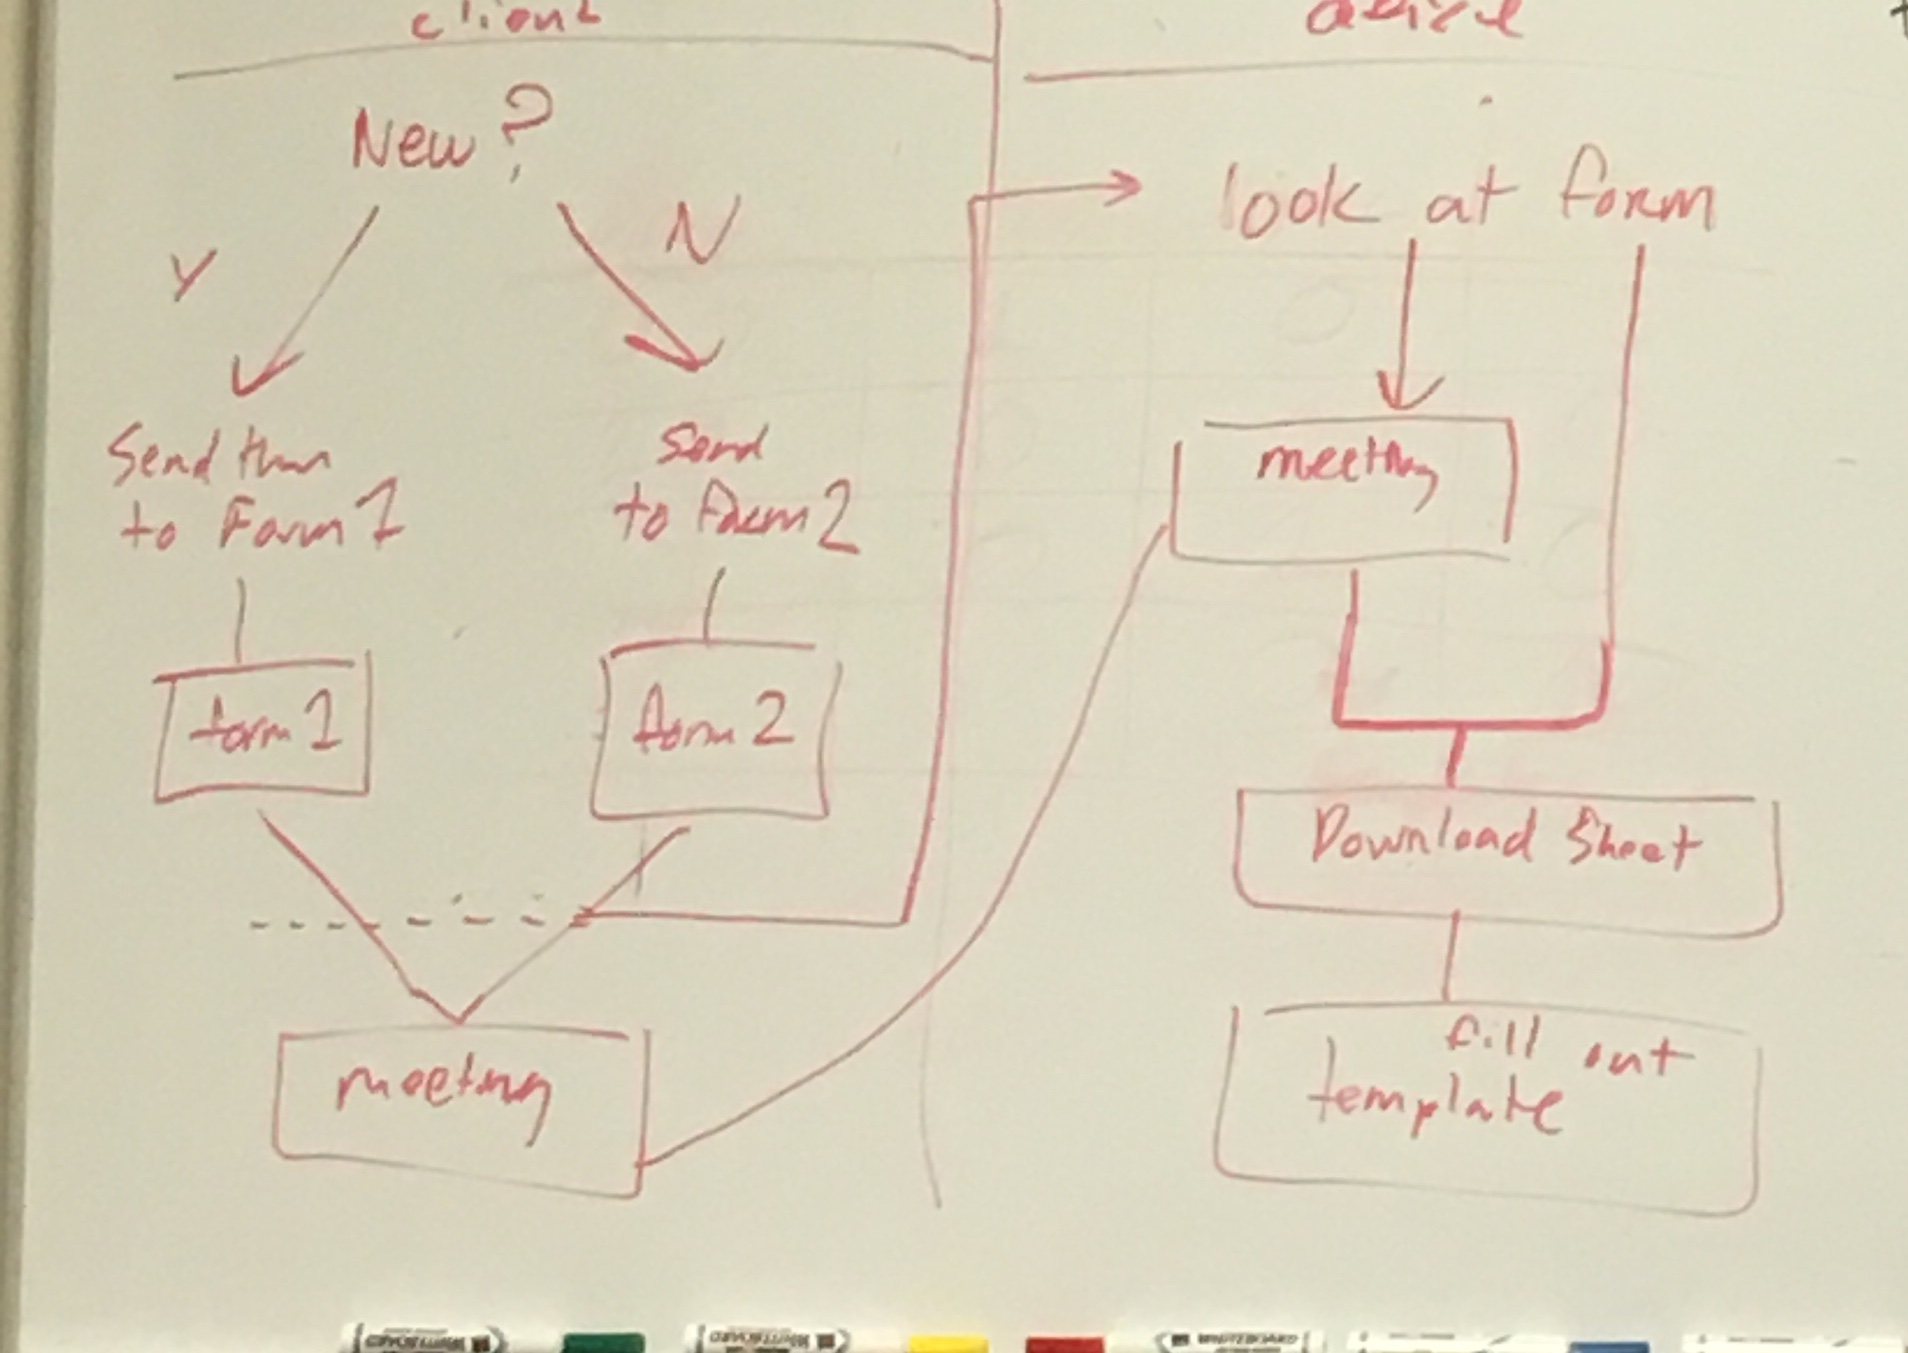 client
New?
Y
N
Send them
to Form 1
Send
to Form 2
form 1
form 2
meeting
look at form
meeting
Download Sheet
fill out
template